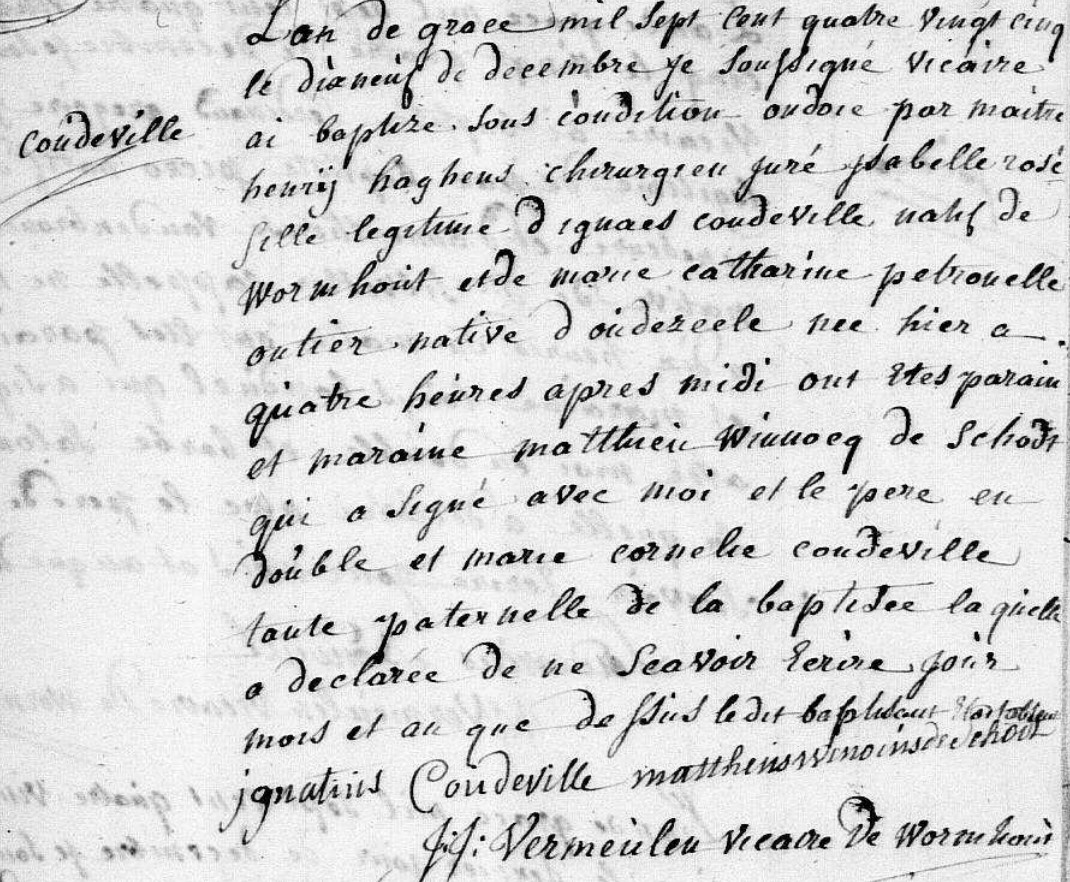 coudeville
Lan de grace mil sept cent quatre vingt cinq
le dixneuf de decembre je soussigné vicaire
ai baptize sous condition ondoié par maitre
henrij haghens chirurgien juré jsabelle rose
fille legitime d ignaes coudeville natif de
wormhout et de marie catharine petronelle
outier native d oudezeele nee hier a
quatre heures apres midi ont etes parain
et maraine matthieu winnocq de Schodt
qui a signé avec moi et le pere en
double et marie cornelie coudeville
tante paternelle de la baptisée laquelle
a declarée de ne scavoir ecrire jour
mois et an que dessus ledit
ignatius Coudeville mattheus winocus de schodt
J: J: Vermeulen vicaire de wormhout